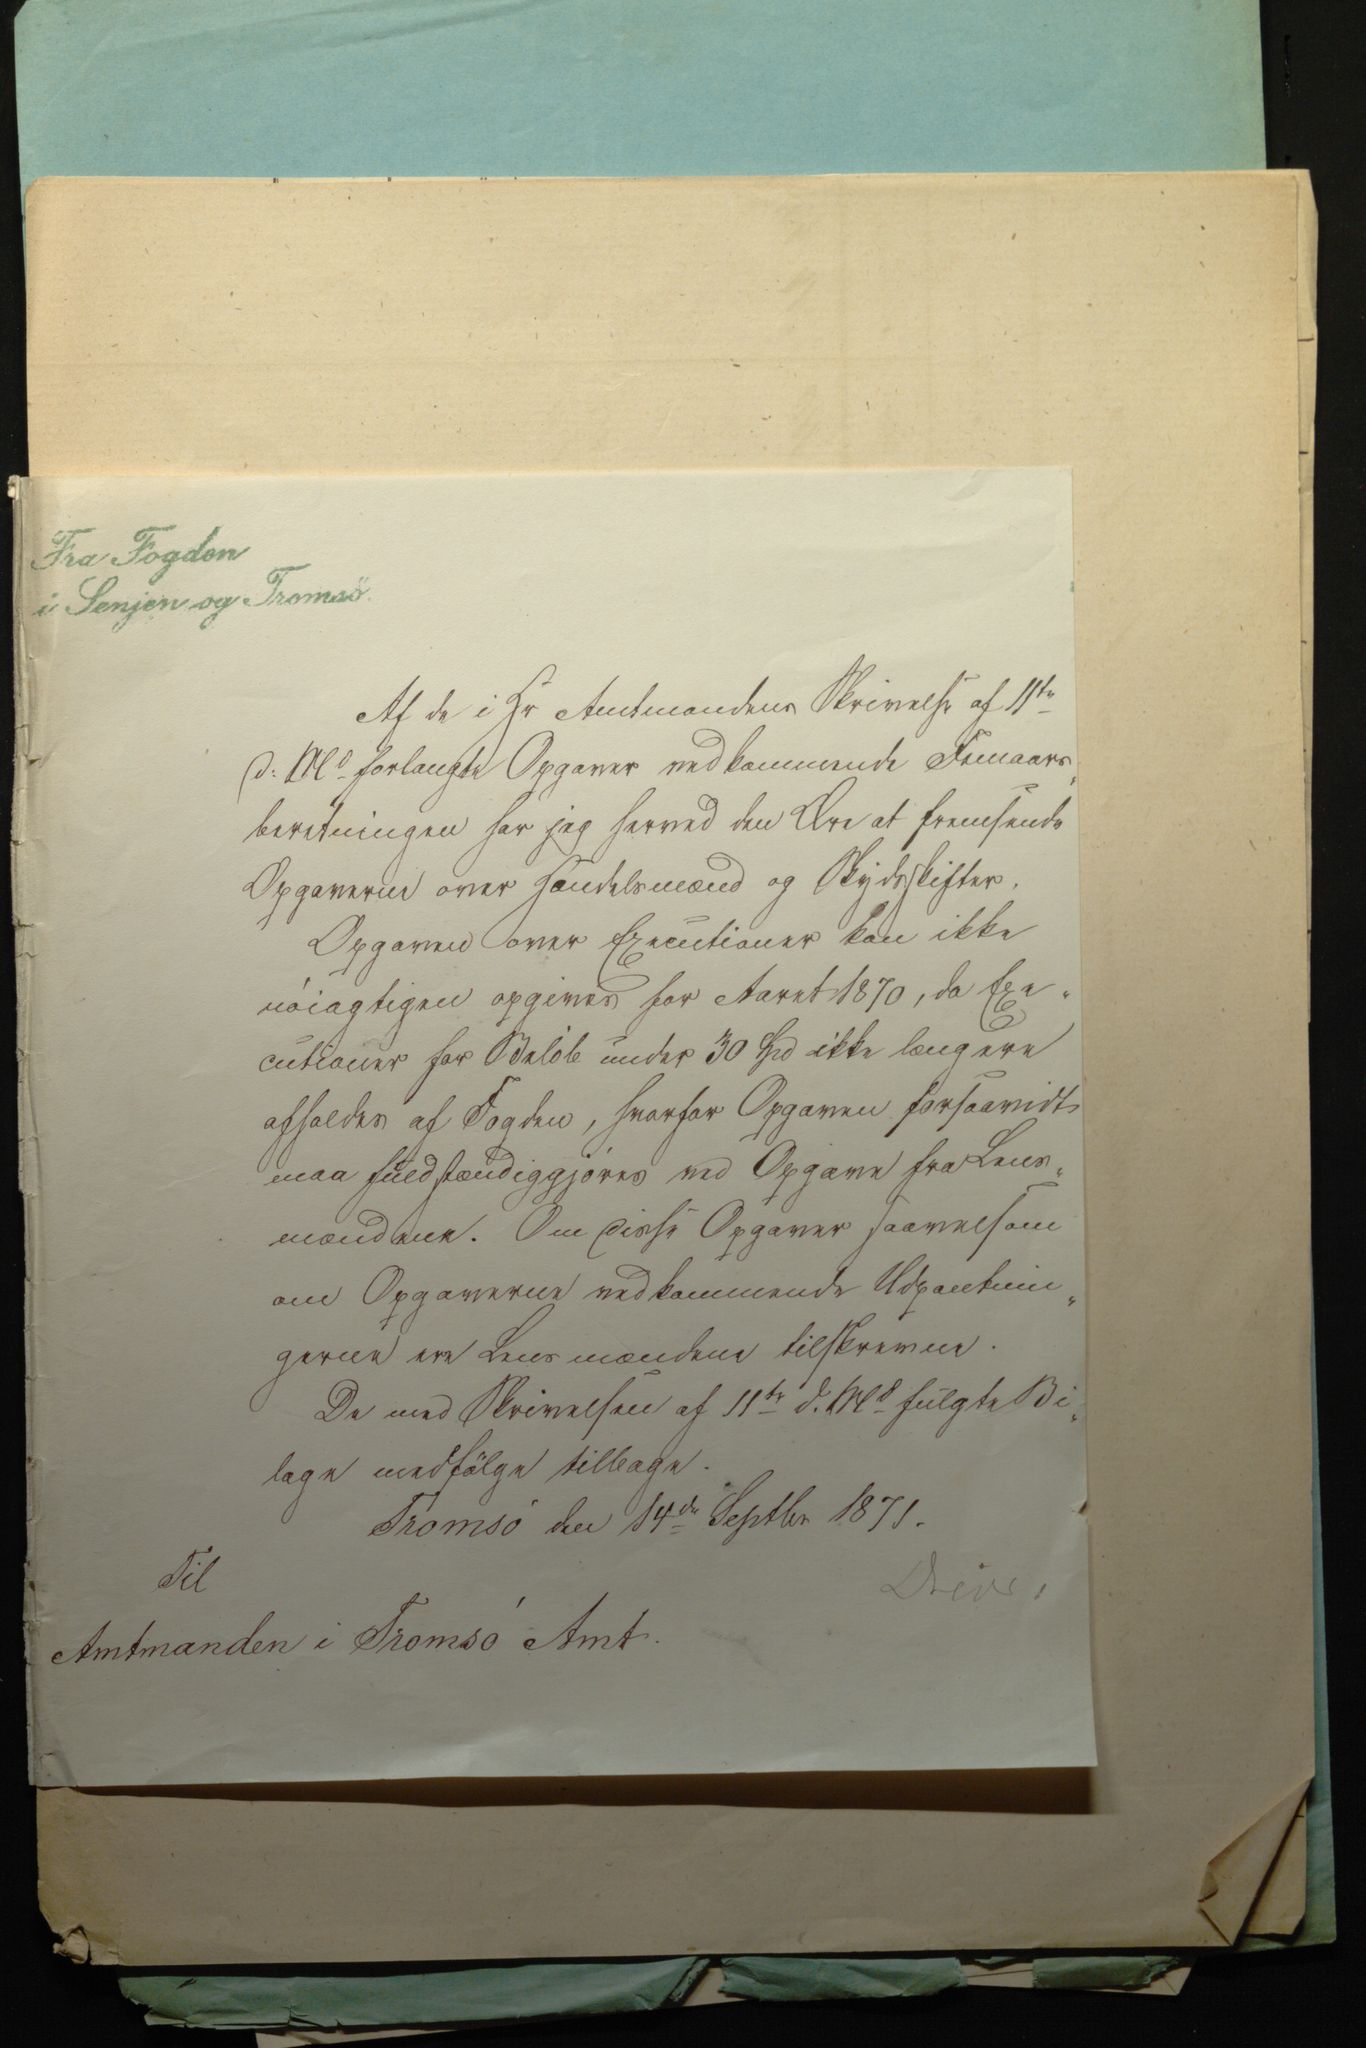 Fra Fogden
i Senjen og Tromsö.
Af de i Hr Amtmandens Skrivelse af 11te
d: Md forlangte Opgaver vedkommende Femaars„
beretningen har jeg herved den Ære at fremsende
Opgaverne over Handelsmænd og Skydsskifter.
Opgaven over Executioner kan ikke
nöiagtigen opgives for Aaret 1870, da Exe„
cutioner for Belöb under 30 Spd ikke længere
afholdes af Fogden, hvorfor Opgaven forsaavidt
maa fuldstændiggjöres ved Opgave fra Lens„
mændene. Om disse Opgaver saavelsom
om Opgaverne vedkommende Udpantnin„
gerne ere Lensmændene tilskrevne.
De med Skrivelsen af 11te d. Md fulgte Bi„
lage medfölge tilbage.
Tromsö den 14de Septbr 1871.
Til
Amtmanden i Tromsö Amt.